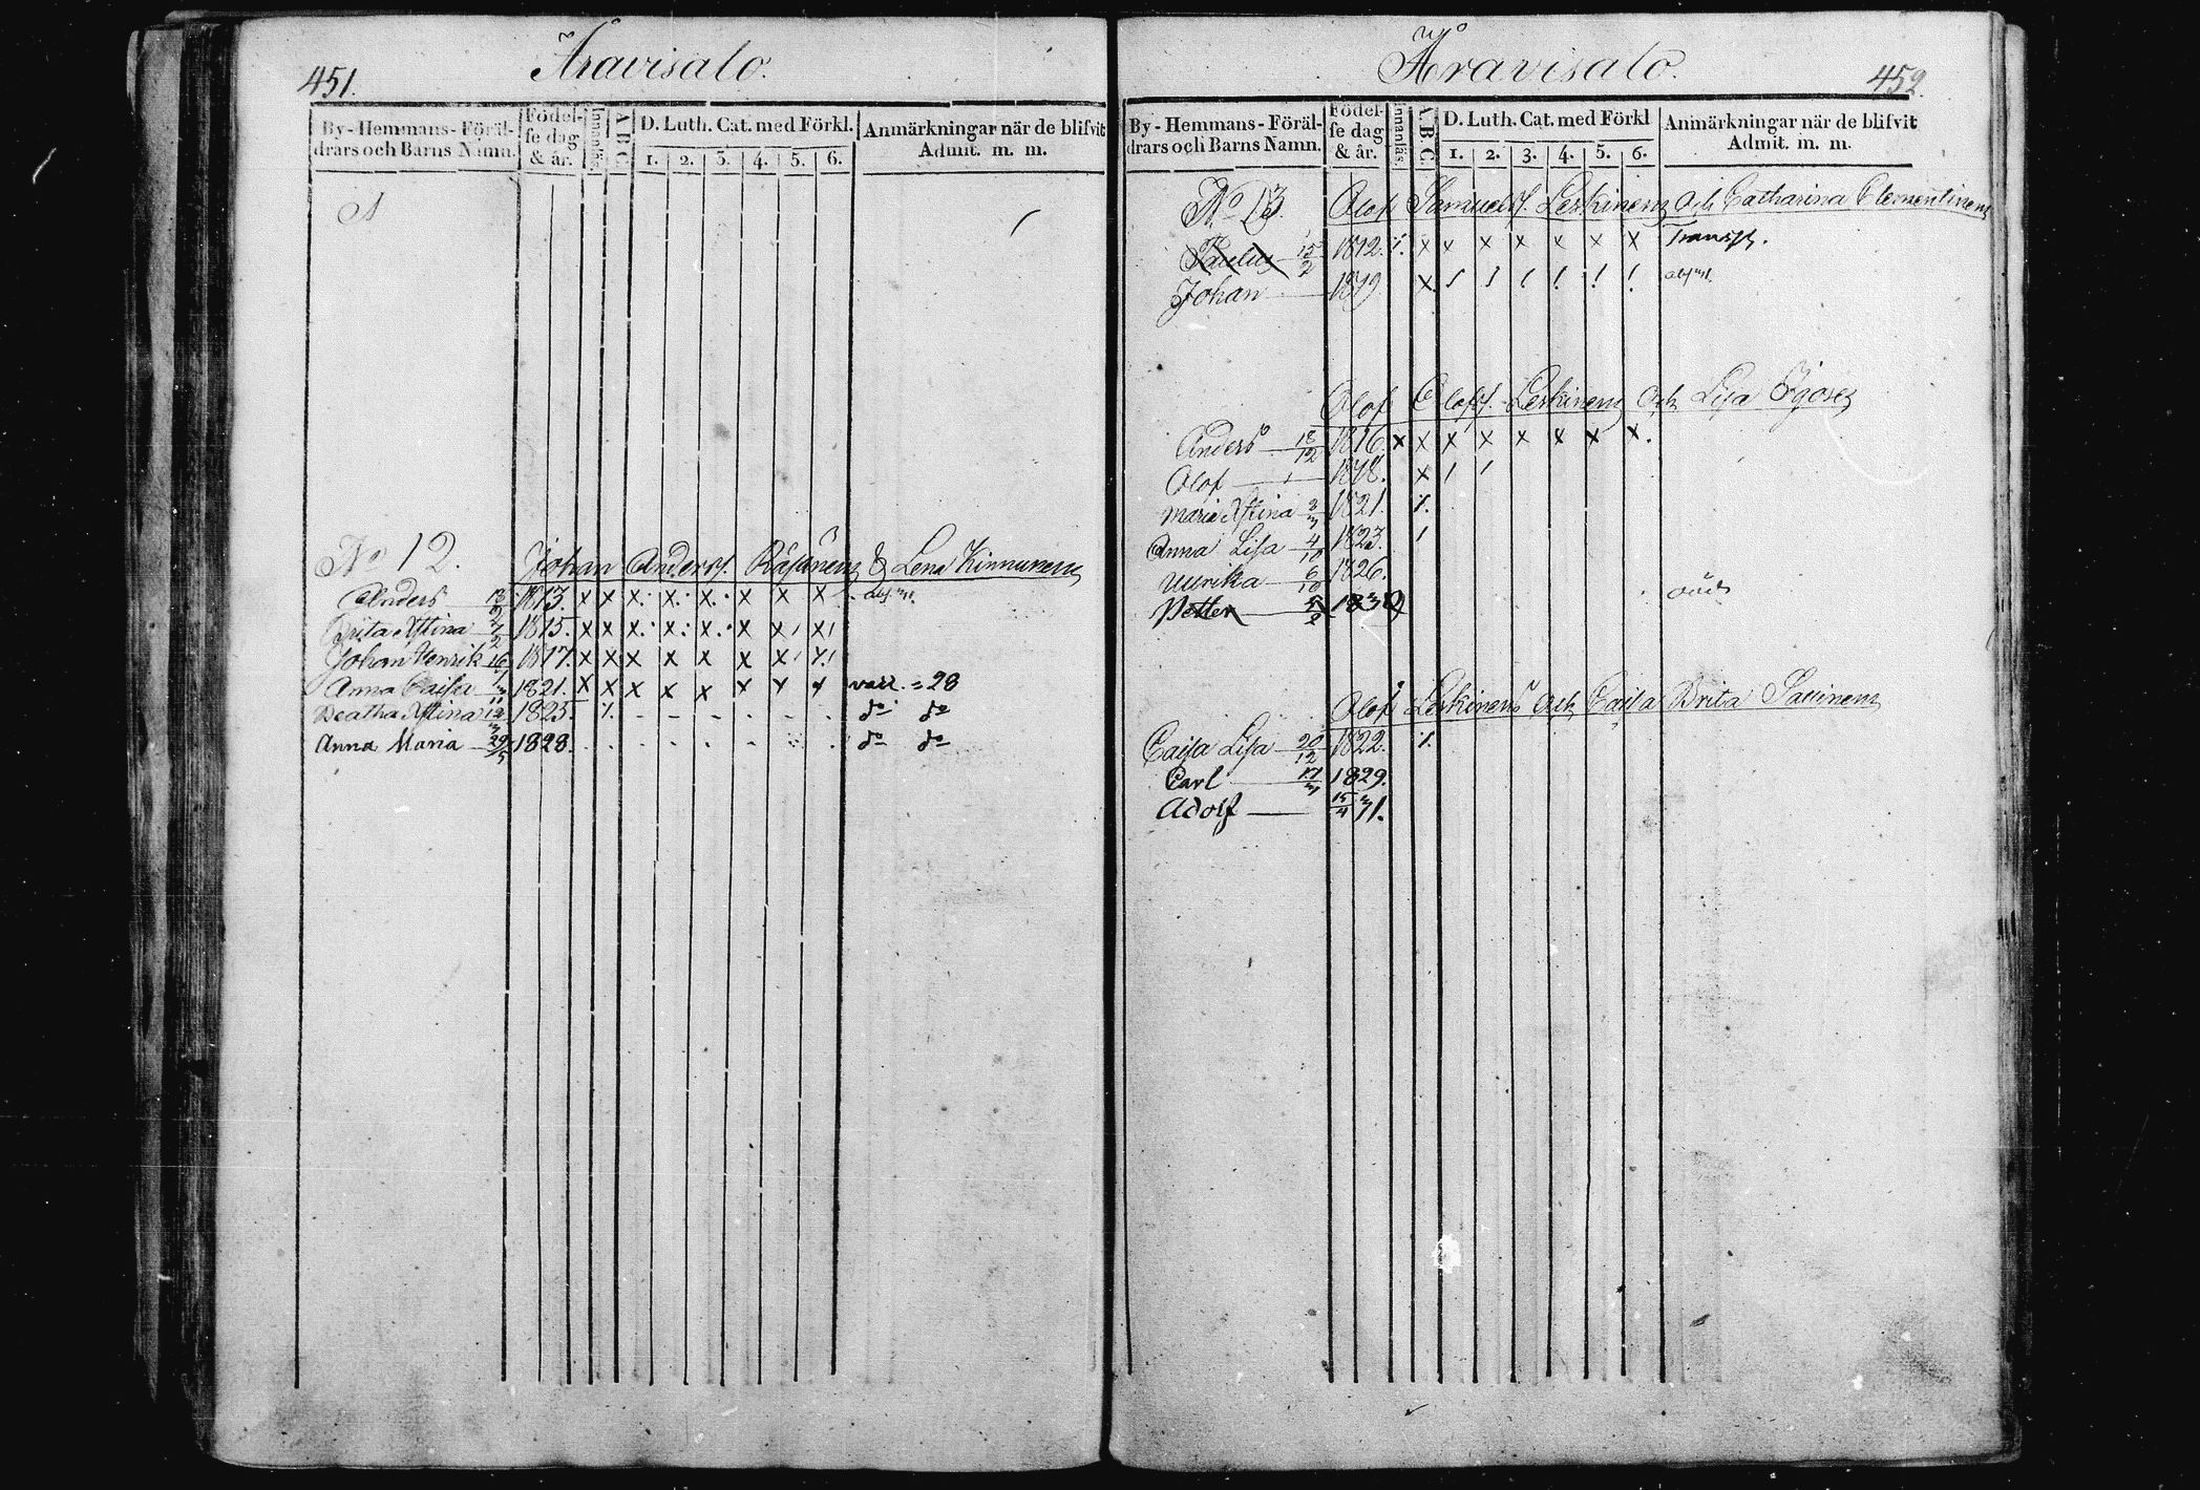 451.
Äravisalo.
By-Hemmans-Föräl-
drars och Barns Namn.
Födel-
se dag
& år.
Innanläs.
A B C.
D. Luth. Cat. med Förkl.
1. 2. 3. 4. 5. 6.
Anmärkningar när de blifvit
Admit. m. m.
No 12. Johan Anders. Räsänen & Lena Kinnunen
Anders 13/2 1813. x x x. x. x. x x abs.
Brita Xstina 7/2 1815. x x x. x. x. x x x
Johan Henrik 16 1817. x x x x x x x x
Anna Caisa 1821. x x x x x x x x varl. = 28
Beatha Xstina 12 1825. do do
Anna Maria 29/5 1828. do do
452.
Äravisalo.
By-Hemmans-Föräl-
drars och Barns Namn.
Födel-
se dag
& år.
Innanläs.
A. B. C.
D. Luth. Cat. med Förkl
1. 2. 3. 4. 5. 6.
Anmärkningar när de blifvit
Admit. m. m.
No 13. Olof Samuels. Leskinen och Catharina Clementinen
Paulus 15/2 1812. x x x x x x x Transp.
Johan 1819 x
Olof Olofs. Leskinen och Lisa
Anders 18/12 1816. x x x x x x x x.
Olof 1818. x
Maria Xstina 1821.
Anna Lisa 4/10 1823.
Ulrika 6/10 1826.
Petter 1830 död
Olof Leskinen och Caisa Brita Savinen
Caisa Lisa 20/12 1822.
Carl 17 1829.
Adolf 15/4 31.